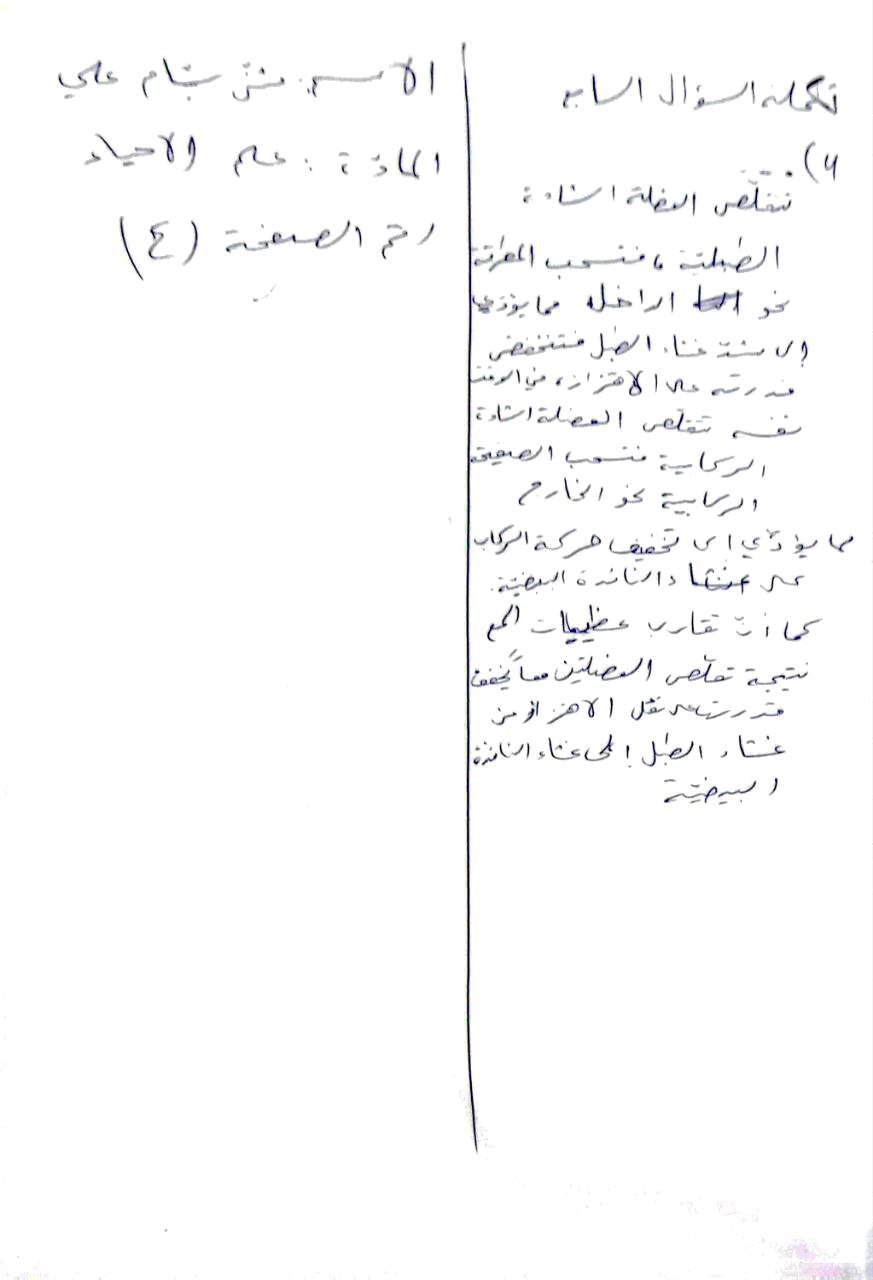 تكملة السؤال السابع
٦)
تتقلّص العضلة الشادة
الطبلية، فتسحب المطرقة
نحو الداخل مما يؤدي
إلى شدّ غشاء الطبل فتنخفض
قدرته على الاهتزاز، في الوقت
نفسه تتقلّص العضلة الشادة
الركابية فتسحب الصفيحة
الركابية نحو الخارج
مما يؤدّي الى تخفيف حركة الركاب
على غشاء النافذة البيضيّة.
كما أنّ تقارب عظيمات السمع
نتيجة تقلّص العضلتين معاً يخفف
قدرتها على نقل الاهتزاز من
غشاء الطبل إلى غشاء النافذة
البيضيّة
الاسم: بسّام علي
المادّة: علم الاحياء
رقم الصفحة (٤)